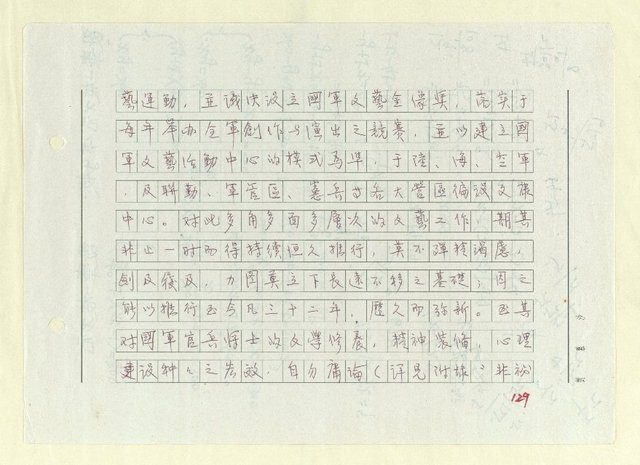 藝運動，並議決設立國軍文藝金像獎，尚英于
每年举办全軍創作与演出之競賽，並以建立國
軍文藝活動中心的模式為準，于陸、海、空軍
，及聯勤、軍管區、憲兵等各大營區徧設文康
中心。对此多角多面多層次的文藝工作，期其
非止一時而得持續恒久推行，莫不殫精竭慮，
劍及履及，力圖奠立下長遠不移之基礎，因之
能以推行至今凡三十二年，歷久而弥新。至其
对國軍官兵俾士的文學修養，精神裝備，心理
建设种々之宏效，自勿庸論（详見附錄：非祕
129